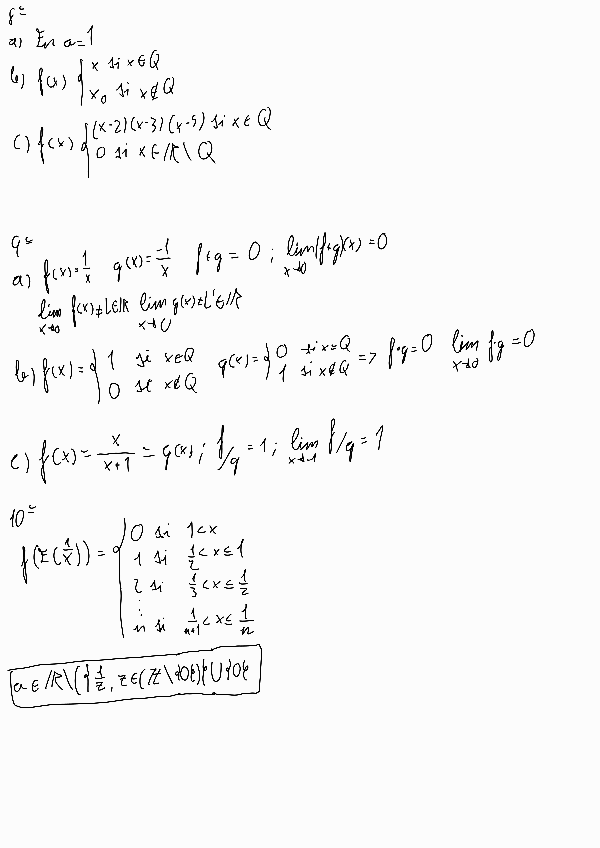 8º
a) En a=1
b) f(x) { x si x∈Q
x₀ si x∉Q
c) f(x) { (x-2)(x-3)(x-5) si x∈Q
0 si x∈ℝ\Q
9º
a) f(x)=1/x g(x)=-1/x f+g=0 ; lim x→0 (f+g)(x)=0
lim x→0 f(x)≠L∈ℝ lim x→0 g(x)≠L'∈ℝ
b) f(x)= { 1 si x∈Q g(x)= { 0 si x∈Q => f·g=0 lim x→0 f·g=0
0 si x∉Q 1 si x∉Q
c) f(x)= x/(x+1) = g(x) ; f/g=1 ; lim x→-1 f/g=1
10º
f(E(1/x)) = { 0 si 1<x
1 si 1/2<x≤1
2 si 1/3<x≤1/2
⋮
n si 1/(n+1)<x≤1/n
a∈ℝ\({1/z, z∈(ℤ\{0})}∪{0}